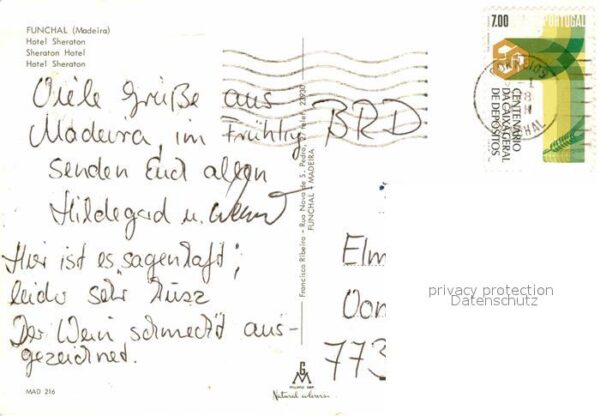 FUNCHAL (Madeira)
Hotel Sheraton
Sheraton Hotel
Hotel Sheraton
Viele Grüße aus
Madeira, im Frühling
senden Euch allen
Hildegard u.
Hier ist es sagenhaft;
leider sehr kurz
Der Wein schmeckt aus-
gezeichnet.
MAD 216
Francisco Ribeiro - Rua Nova de S. Pedro, 27 - Telef. 23930
FUNCHAL - MADEIRA
GM
Natural colours
BRD
Elm
Von
773
7.00 PORTUGAL
CENTENÁRIO
DA CAIXA GERAL
DE DEPÓSITOS
privacy protection
Datenschutz